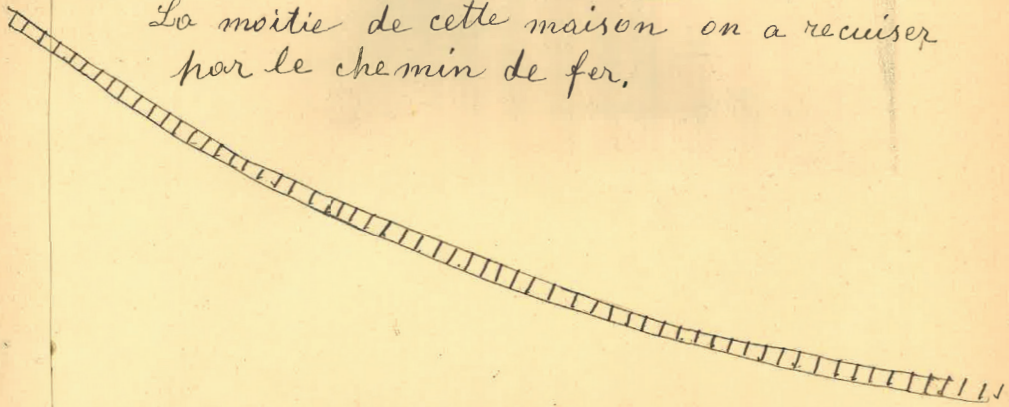 La moitie de cette maison on a recuiser
par le chemin de fer.